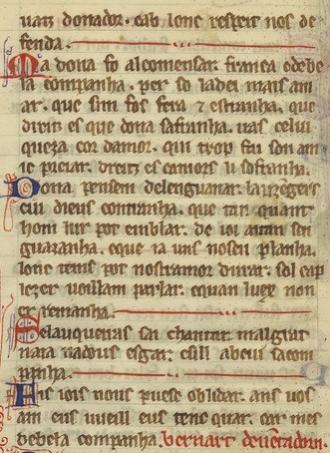 uatz donador. cab lonc respeit nos de
fenda.
Ma dona fo al comensar. franca e de be
la companha. per so la dei mais am
ar. que sim fos fera 7 estranha. que
dreitz es que dona safranha. uas celui
queza cor damor. qui trop fai son am
ic preiar. dreitz es camors li sofranha.
Dona pensem del enguanar. lauzengers
cui dieus contranha. que tan quant
hom lur pot emblar. de ioi aitan sen
guazanha. e que ia uns nosen planha.
lonc tems pot nostramor durar. sol cap
lezer uoillam parlar. e quan luex non
er remanha.
Bela uquenas sai chantar. mal grat
naia nadous esgar. e sill ab cui sacom
panha.
Ans iois nous puesc oblidar. ans uos
am eus vueill eus tenc quar. car mes
de bela companha. bernart deuentadorn.